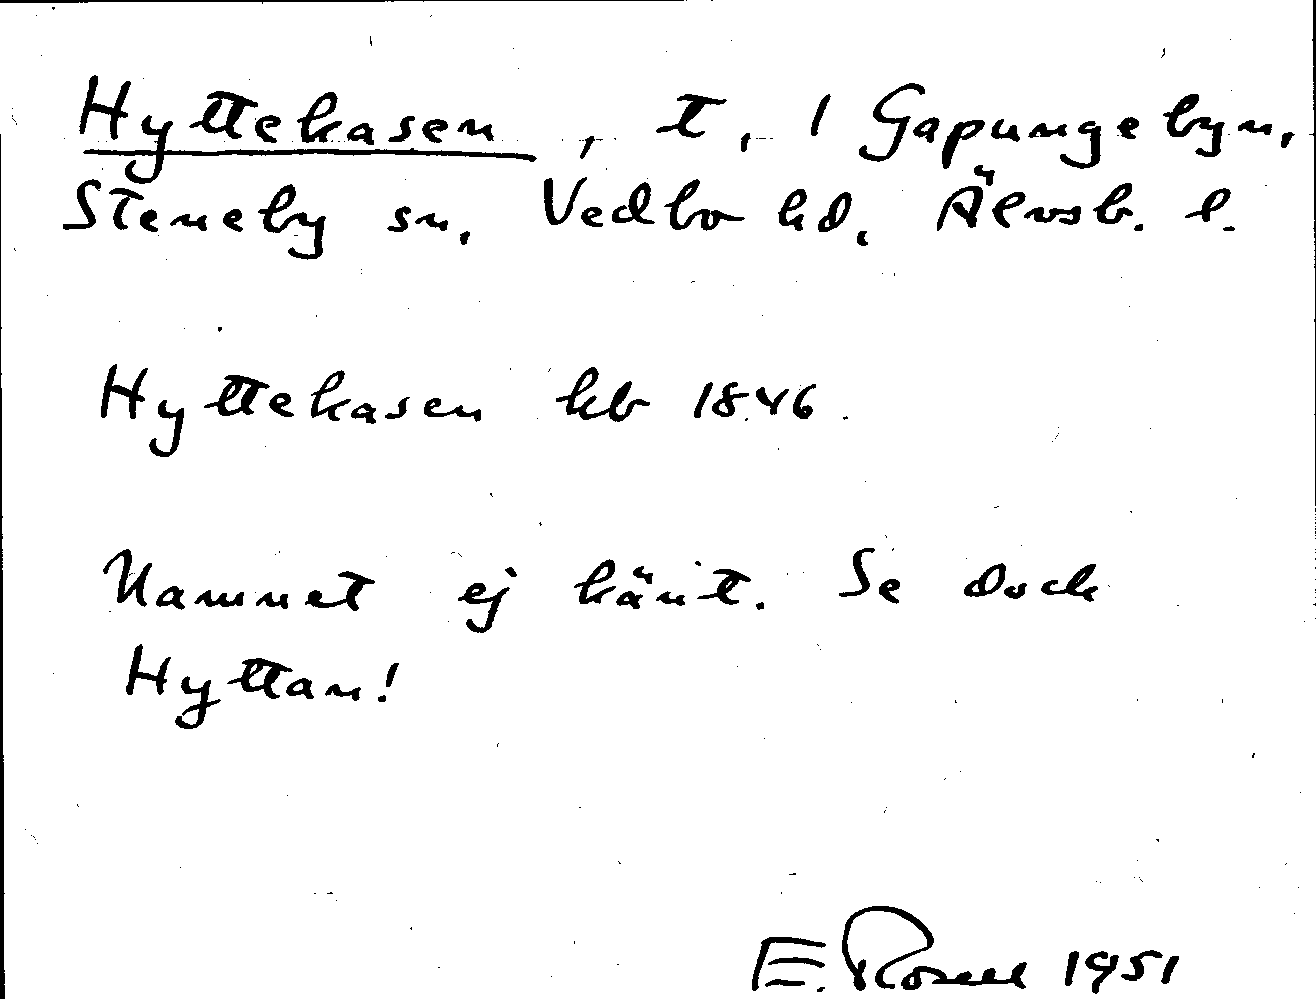 Hyttekasen, t. / Gapungebyn,
Steneby sn, Vedbo hd, Älvsb. l.
Hyttekasen kb 1846.
Namnet ej känt. Se dock
Hyttan!
E. Rosell 1951